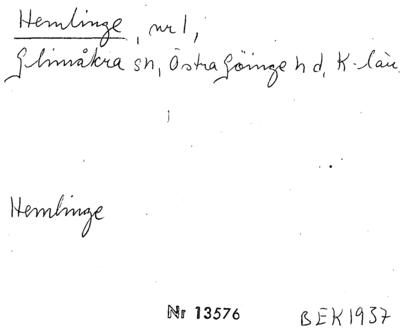 Hemlinge, nr 1,
Glimåkra sn, Östra Göinge hd, K-län
Hemlinge
Nr 13576 BEK 1937